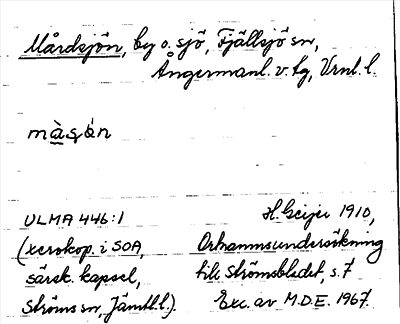 Mårdsjön, by o. sjö, Fjällsjö sn,
Ångermanl. v. tg, Vrnl. l.
màṣǿn
ULMA 446:1 H. Geijer 1910,
(xerokop. i SOA, Ortnamnsundersökning
särsk. kapsel, till Strömsbladet, s. 7
Ströms sn, Jämtl. l.). Exc. av M.D.E. 1967.